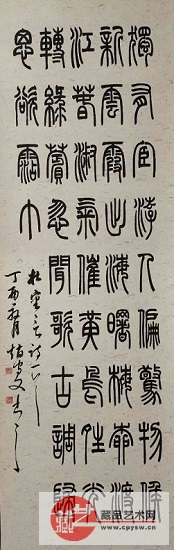 獨有宦游人偏驚物候
新雲霞出海曙梅柳渡
江春淑氣催黃鳥晴光
轉綠蘋忽聞歌古調歸
思欲霑巾
杜審言詩一首
丁酉秋月
藏品艺术网
www.cpysw.cn